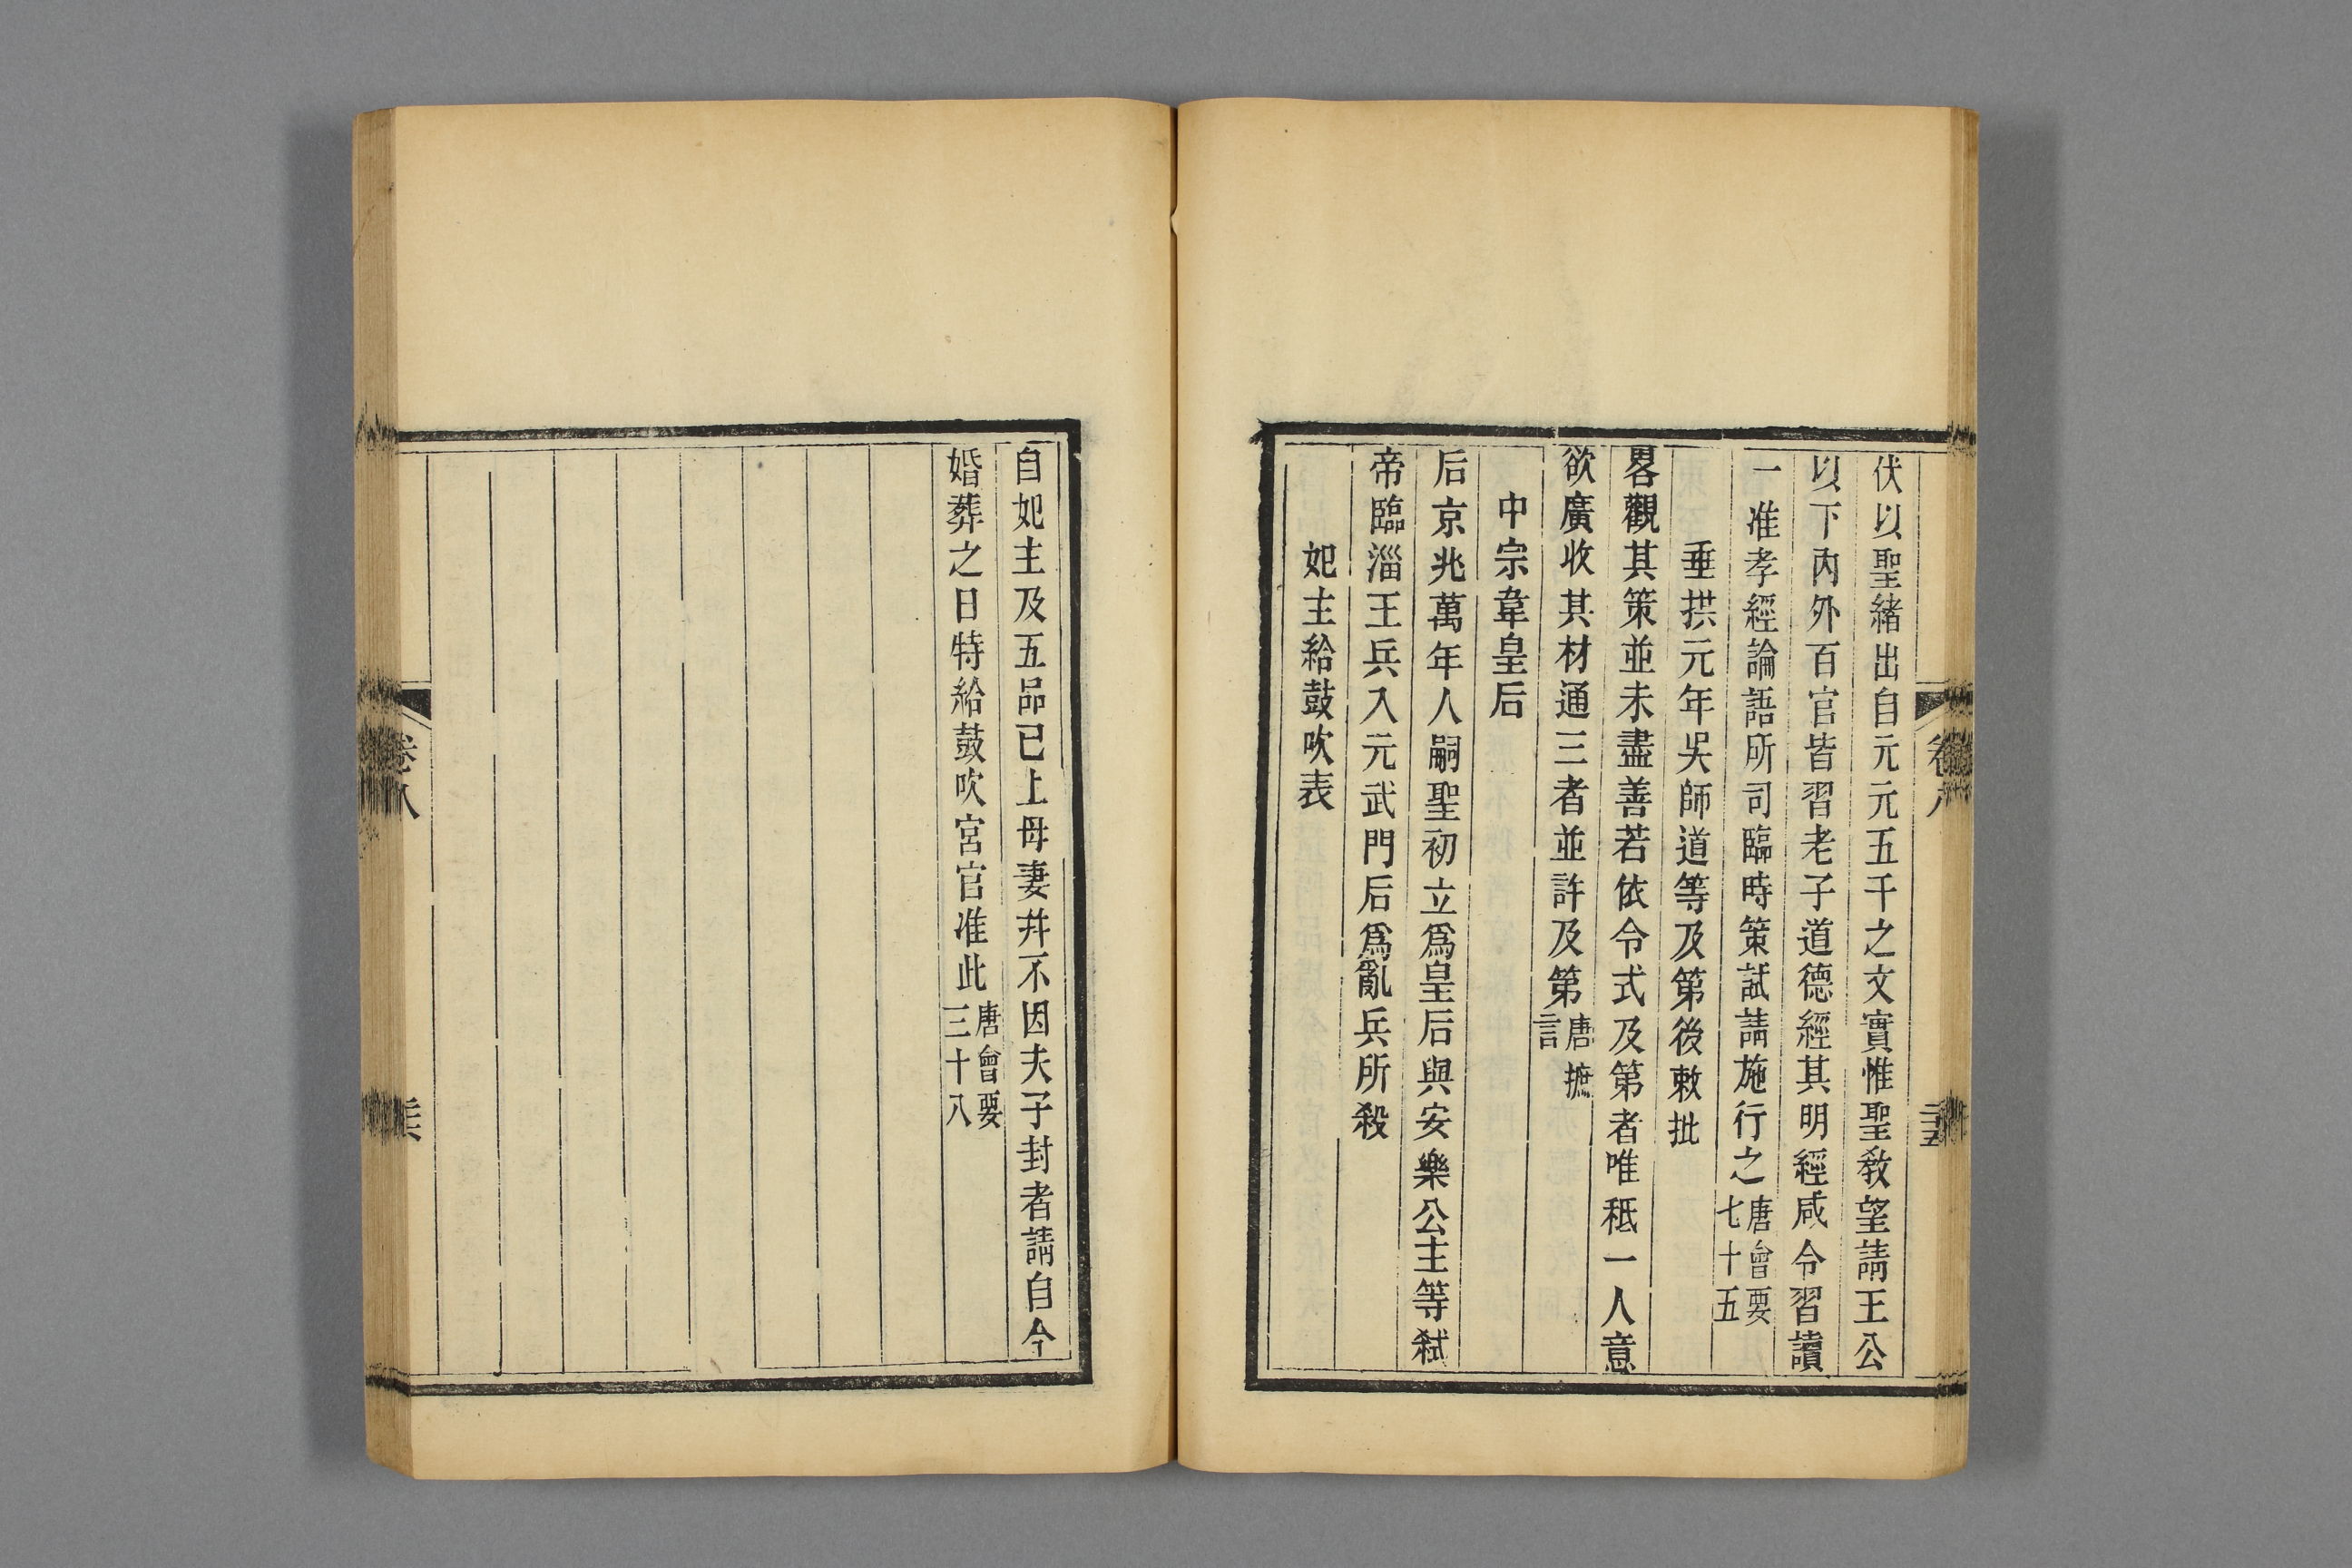 伏以聖緒出自元元五千之文實惟聖敎望請王公
以下內外百官皆習老子道德經其明經咸令習讀
一准孝經論語所司臨時策試請施行之唐會要七十五
垂拱元年吳師道等及第後敕批
畧觀其策並未盡善若依令式及第者唯秪一人意
欲廣收其材通三者並許及第唐摭言
中宗韋皇后
后京兆萬年人嗣聖初立爲皇后與安樂公主等弒
帝臨淄王兵入元武門后爲亂兵所殺
妃主給鼓吹表
卷八
二十五
自妃主及五品已上母妻并不因夫子封者請自今
婚葬之日特給鼓吹宮官准此唐會要三十八
卷八